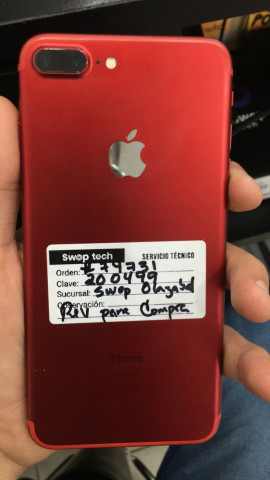 Swop tech SERVICIO TÉCNICO
Orden: #74731
Clave: 200499
Sucursal: Swop Olazabal
Observación:
Rev para Compra
iPhone